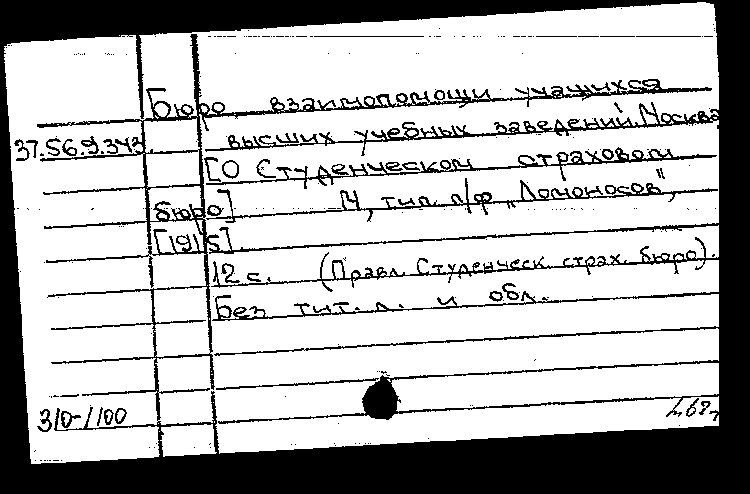 Бюро взаимопомощи учащихся
37.56.9.343. высших учебных заведений. Москва
[О Студенческом страховом
бюро] М, тип. п/ф „Ломоносов",
[1915].
12 с. (Правл. Студенческ. страх. бюро).
Без тит. л. и обл.
310-1100